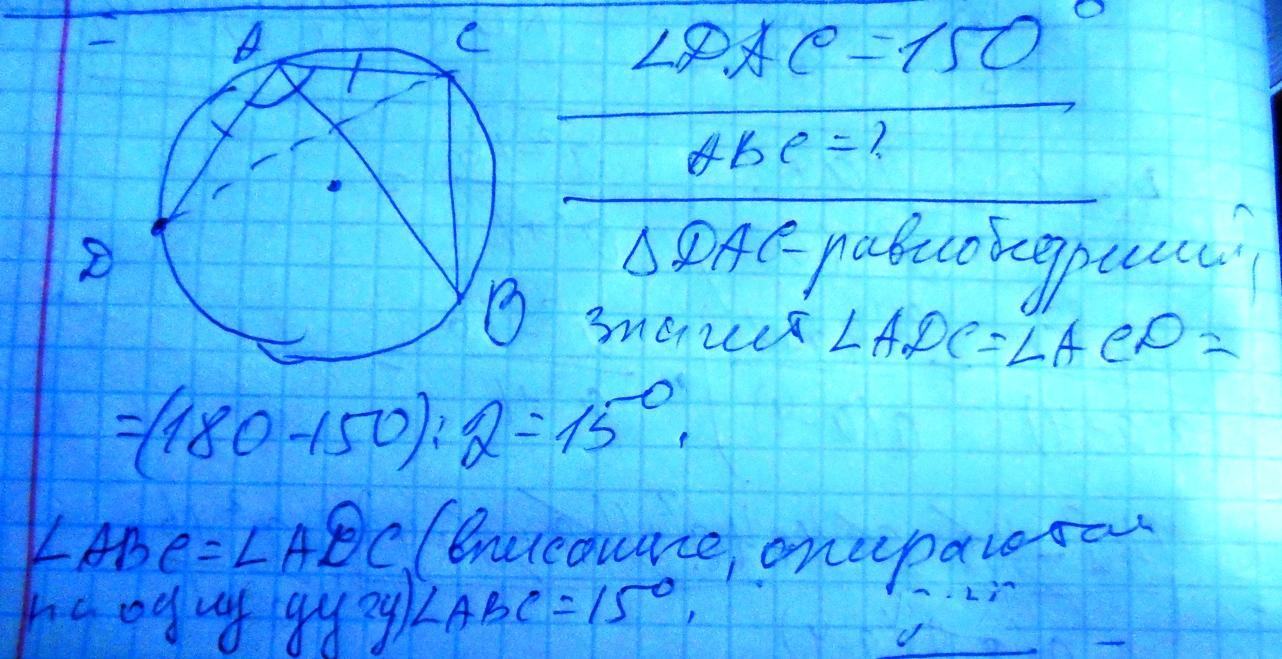 A C
∠DAC = 150°
ABC = ?
D
B
ΔDAC - равнобедренный,
значит ∠ADC = ∠ACD =
= (180 - 150) : 2 = 15°.
∠ABC = ∠ADC (вписанные, опираются
на одну дугу) ∠ABC = 15°.